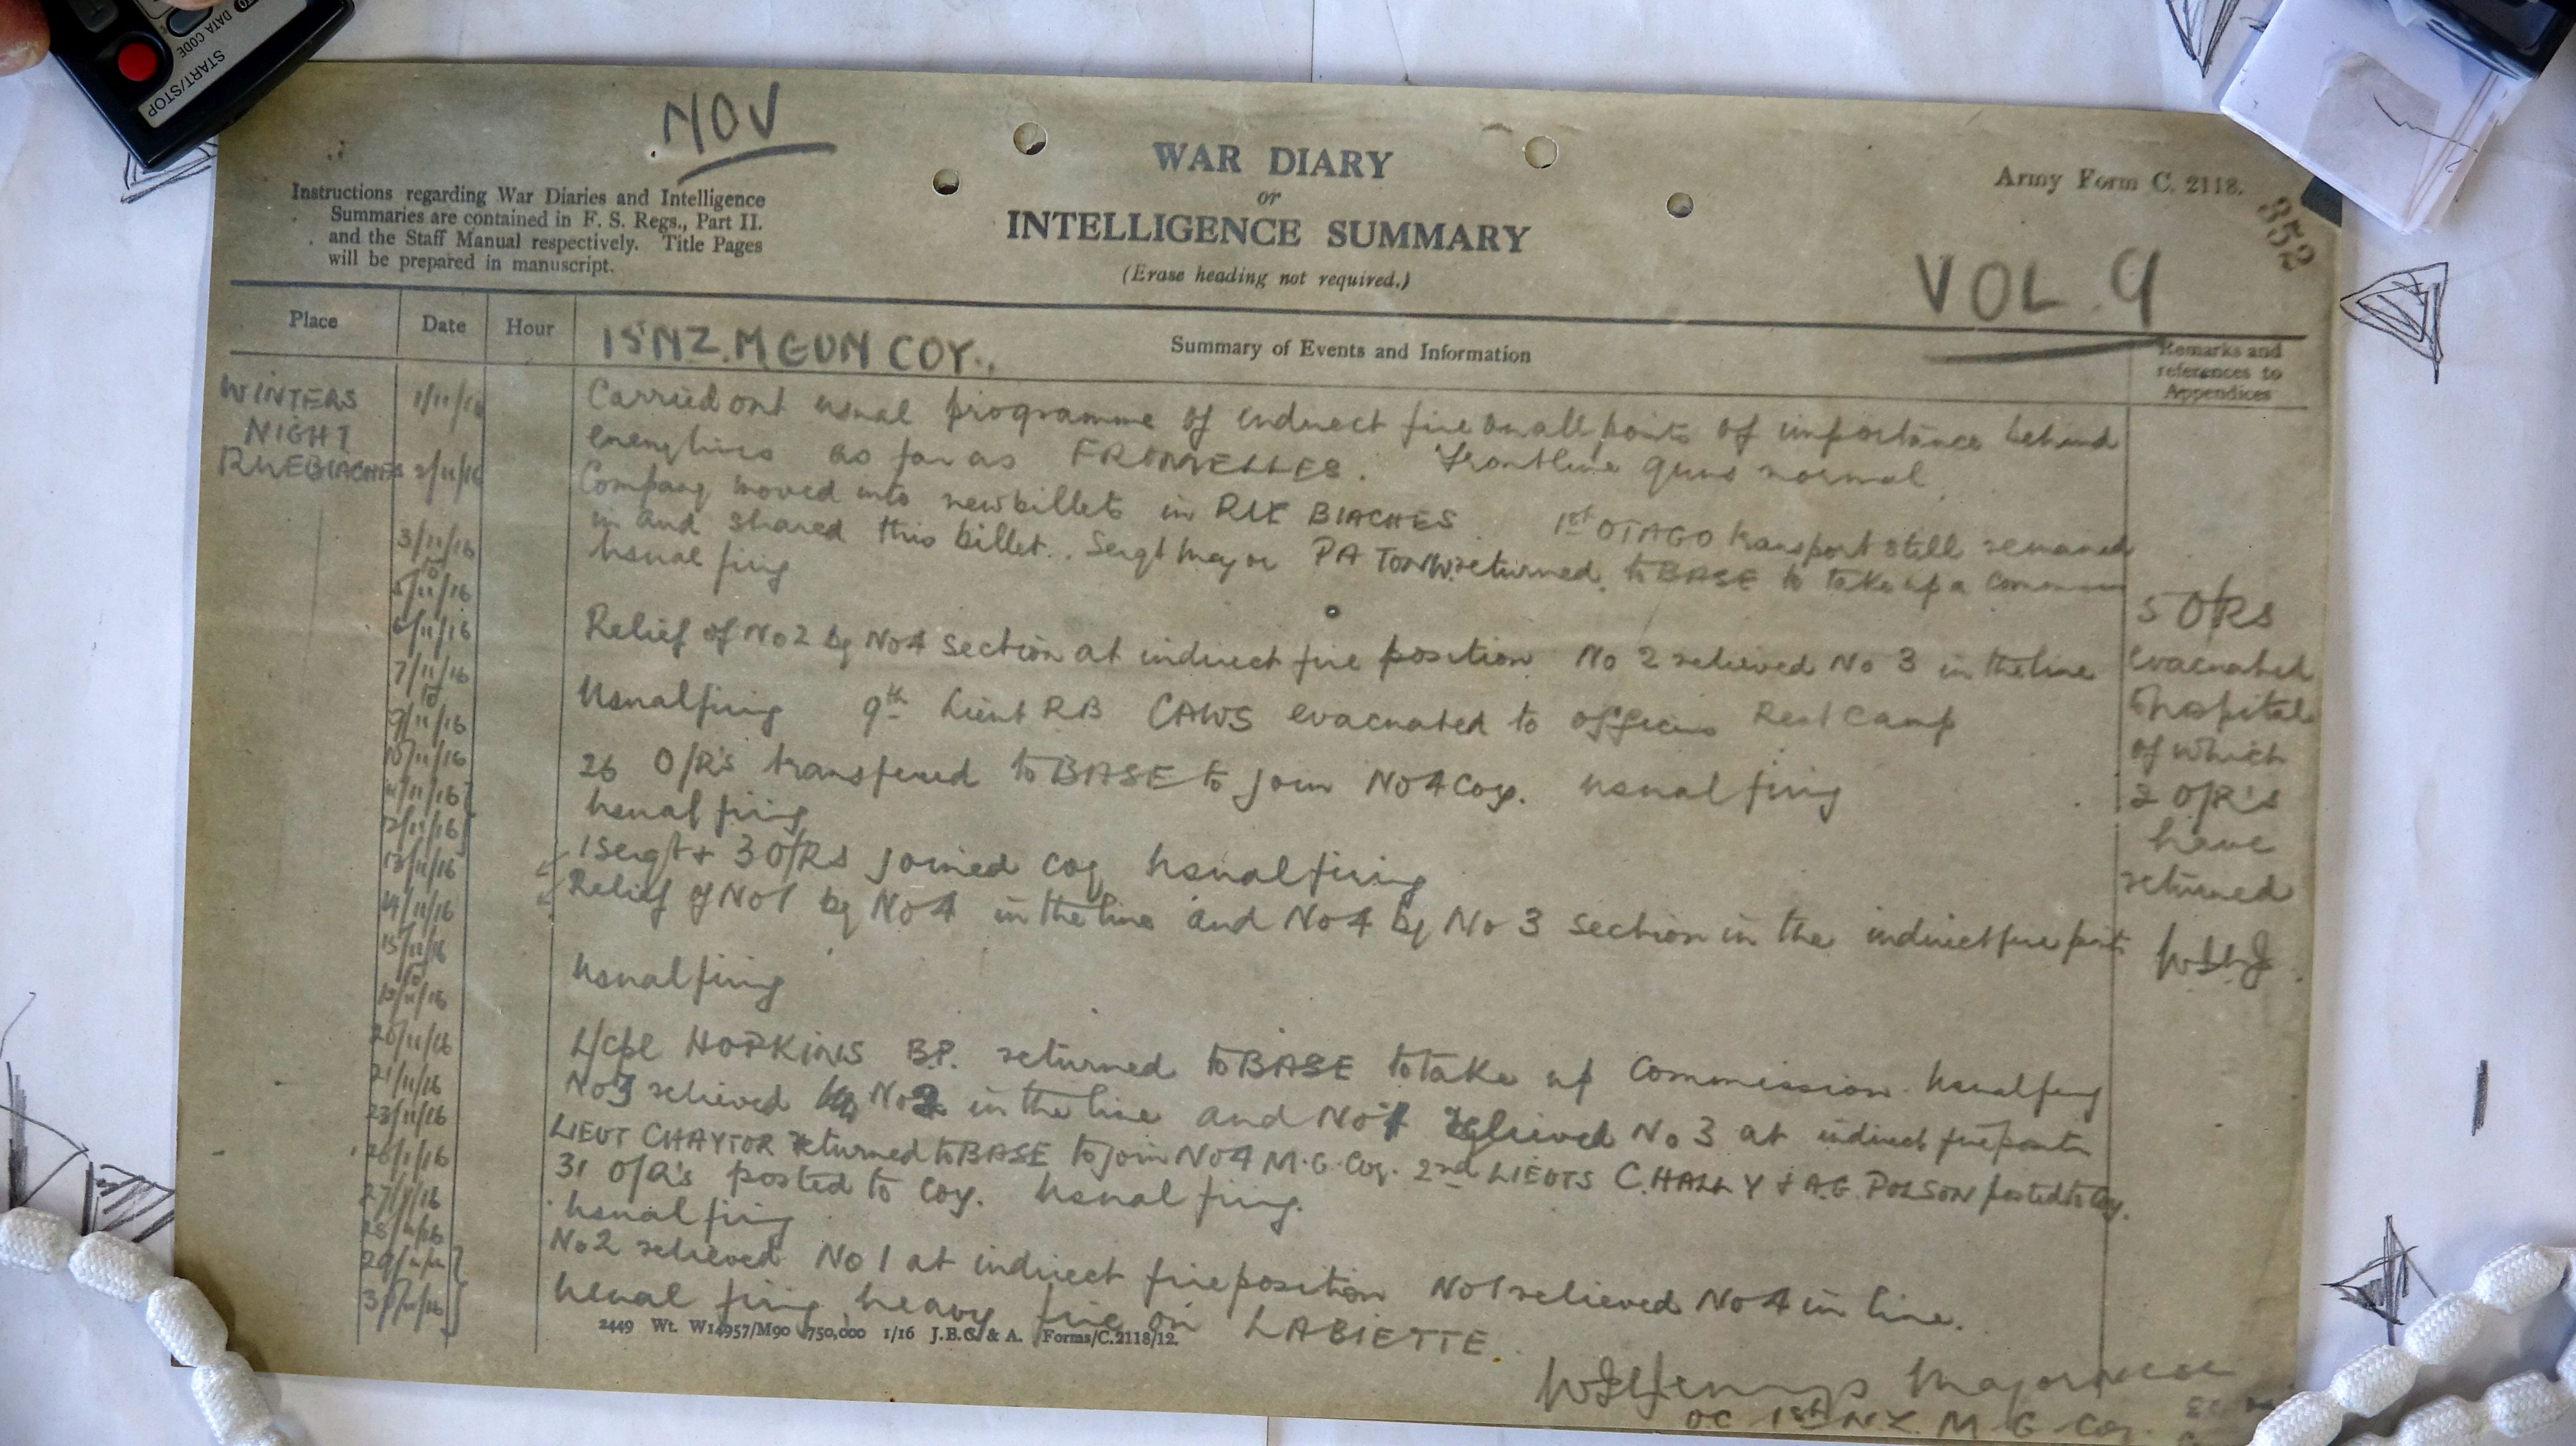 START/STOP
DATA CODE
NOV
WAR DIARY
or
INTELLIGENCE SUMMARY
(Erase heading not required.)
Army Form C. 2118.
352
Instructions regarding War Diaries and Intelligence
Summaries are contained in F. S. Regs., Part II.
and the Staff Manual respectively. Title Pages
will be prepared in manuscript.
VOL 9
Place Date Hour Summary of Events and Information Remarks and references to Appendices
1st NZ. M GUN COY.
WINTERS 1/11/16 Carried out usual programme of indirect fire on all points of importance behind
NIGHT enemy lines as far as FROMELLES. Frontline guns normal
RUE BIACHES 2/11/16 Company moved into new billets in RUE BIACHES 1st OTAGO transport still remained
in and shared this billet. Sergt Major PATON W. returned to BASE to take up a
3/11/16 Usual firing
to
5/11/16
6/11/16 Relief of No 2 by No 4 section at indirect fire position No 2 relieved No 3 in the line
7/11/16 Usual firing 9th Lieut RB CAWS evacuated to officers Rest Camp
to
9/11/16
10/11/16 26 O/R's transfered to BASE to join No 4 Coy. usual firing
11/11/16 Usual firing
12/11/16
13/11/16 1 Sergt + 3 O/Rs joined coy Usual firing
14/11/16 Relief of No 1 by No 4 in the line and No 4 by No 3 section in the indirect fire
15/11/16 Usual firing
to
19/11/16
20/11/16 L/cpl HOPKINS B.P. returned to BASE to take up Commission. Usual firing
21/11/16 No 3 relieved by No 2 in the line and No 1 relieved No 3 at indirect fire
23/11/16 LIEUT CHAYTOR returned to BASE to join No 4 M.G. Coy. 2nd LIEUTS C. HALLY & A.G. POLSON posted to Coy.
31 O/R's posted to Coy. Usual firing.
27/11/16 Usual firing
28/11/16 No 2 relieved No 1 at indirect fire position No 1 relieved No 4 in line.
29/11/16 Usual firing, heavy fire on LABIETTE.
30/11/16
5 O/Rs
evacuated
to hospital
of which
2 O/R's
have
returned
2449 Wt. W14957/M90 750,000 1/16 J.B.C. & A. Forms/C.2118/12.
Jennings Major
OC 1st N.Z. M G Coy.